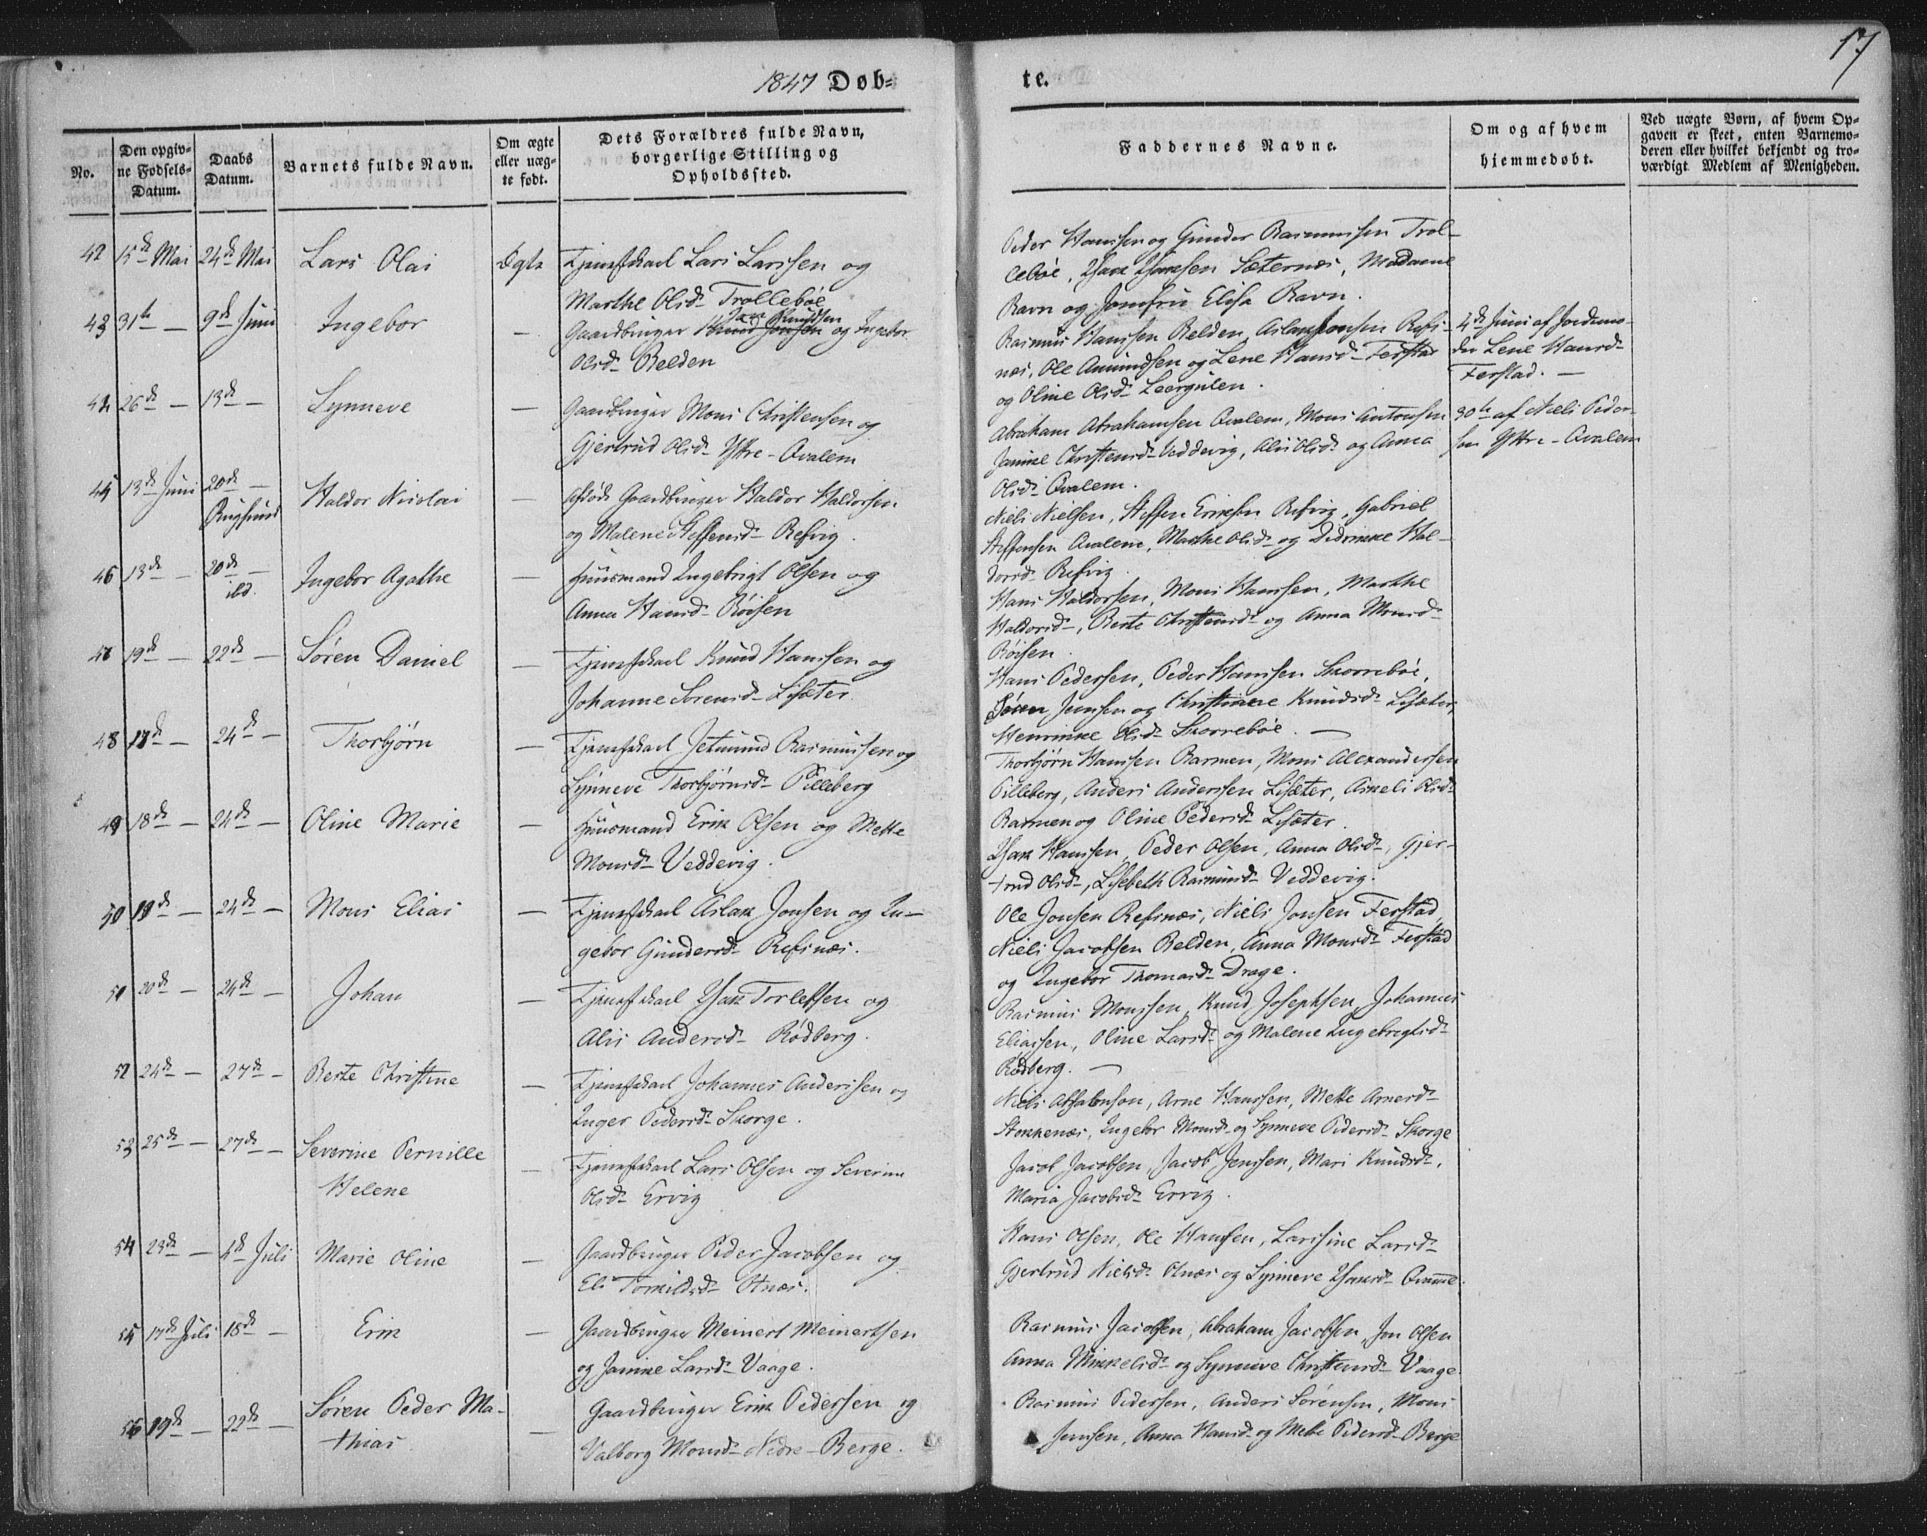 1847 Døb-
te.
17
No.
Den opgiv-
ne Fødsels-
Datum.
Daabs
Datum.
Barnets fulde Navn.
Om ægte
eller uæg-
te født.
Dets Forældres fulde Navn,
borgerlige Stilling og
Opholdssted.
Faddernes Navne.
Om og af hvem
hjemmedøbt.
Ved uægte Børn, af hvem Op-
gaven er skeet, enten Barnemo-
deren eller hvilket bekjendt og tro-
værdigt Medlem af Menigheden.
42 15de Mai 24de Mai Lars Olai Ægte Tjenestkarl Lars Larssen og
Marthe Olsdr Trollebøe
Peder Hanssen og Gunder Rasmussen Trol-
lebøe, Isak Isaksen Sæternæs, Madame
Ravn og Jomfru Elisa Ravn.
43 31te — 9de Juni Ingebor — Gaardbruger Knud Jonson Jon Knudsen og Ingebor
Olsdr Belden
Rasmus Hanssen Belden, Aslak Jonsen Refs-
næs, Ole Amundsen og Lene Hansdr Ferstad
og Oline Olsdr Leergulen.
4de Juni af Jordemo-
der Lene Hansdr
Ferstad. —
44 26de — 13de — Synneve — Gaardbruger Mons Christensen og
Gjertrud Olsdr Yttre-Qvalem
Abraham Abrahamsen Qvalem, Mons Antonsen
Jannike Christensdr Veddevig, Alis Olsdr og Anna
Olsdr Qvalem.
30te af Niels Peder-
sen Yttre-Qvalem
45 13de Juni 20de —
Rugsund
Haldor Nicolai — Afdøde Gaardbruger Haldor Haldorsen
og Malene Steffensdr Refvig.
Niels Nielsen, Steffen Eriksen Refvig, Gabriel
Steffensen Qvalem, Marthe Olsdr og Didrikke Hal-
dorsdr Refvig.
46 13de — 20de —
ibd.
Ingebor Agathe — Huusmand Ingebrigt Olsen og
Anna Hansdr Røisen
Hans Haldorsen, Mons Hanssen, Marthe
Haldorsdr, Berte Christensdr og Anna Monsdr
Røisen.
47 19de — 22de — Søren Daniel — Tjenestkarl Knud Hanssen og
Johanne Sørensdr Lisæter
Hans Pedersen, Peder Hanssen Skorrebøe,
Søren Jenssen og Christiane Knudsdr Lisæter,
Henrikke Olsdr Skorrebøe. —
48 17de — 24de — Thorbjørn — Tjenestkarl Jetmund Rasmussen og
Synneve Thorbjørnsdr Pilleberg
Thorbjørn Hanssen Barmen, Mons Alexandersen
Pilleberg, Anders Anderssen Lisæter, Olsdr
Barmen og Oline Pedersdr Lisæter.
49 18de — 24de — Oline Marie — Huusmand Erik Olsen og Mette
Monsdr Veddevig.
Isak Hanssen, Peder Olsen, Anna Olsdr, Gjer-
trud Olsdr, Lisebeth Rasmusdr Veddevig.
50 19de — 24de — Mons Elias — Tjenestkarl Aslak Jonsen og In-
gebor Gundersdr Refsnæs.
Ole Jonsen Refsnæs, Niels Jonsen Ferstad,
Niels Jacobsen Belden, Anna Monsdr Ferstad
og Ingebor Thomasdr Drage.
51 20de — 24de — Johan — Tjenestkarl Isak Torlefsen og
Alis Andersdr Rødberg.
Rasmus Monssen, Knud Josephsen, Johannes
Eliassen, Oline Larsdr og Malene Ingebrigtsdr
Rødberg. —
52 24de — 27de — Berte Christine — Tjenestkarl Johannes Anderssen og
Inger Pedersdr Skorge.
Niels Absalonson, Arne Hanssen, Mette Arnesdr
Stokkenæs, Ingebor Monsdr og Synneve Pedersdr Skorge
53 25de — 27de — Severine Pernille
Helene
— Tjenestkarl Lars Olsen og Severine
Olsdr Ervig
Jacob Jacobsen, Jacob Jenssen, Mari Knudsdr,
Maria Jacobsdr Ervig.
54 23de — 4de Juli Marie Oline — Gaardbruger Peder Jacobsen og
Eli Torkildsdr Otnæs.
Hans Olsen, Ole Hanssen, Larsine Larsdr
Gjertrud Nielsdr Otnæs og Synneve Isaksdr
55 17de Juli 18de — Erik — Gaardbruger Meinert Meinertsen
og Jannike Larsdr Vaage.
Rasmus Jacobsen, Abraham Jacobsen, Jon Olsen
Anna Mikkelsdr og Synneve Christensdr Vaage
56 19de — 22de — Søren Peder Ma-
thias
— Gaardbruger Erik Pedersen og
Valborg Monsdr Nedre-Berge.
Rasmus Pedersen, Anders Sørensen, Mons
Jenssen, Anna Hansdr og Mette Pedersdr Berge